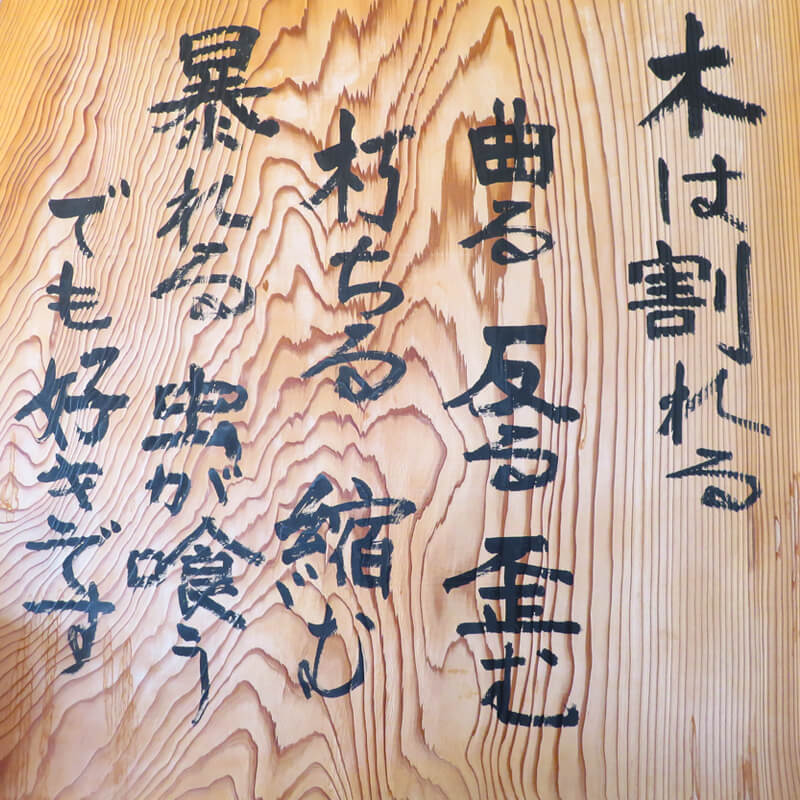 木は割れる
曲る 反る 歪む
朽ちる 縮む
暴れる 虫が喰う
でも好きです